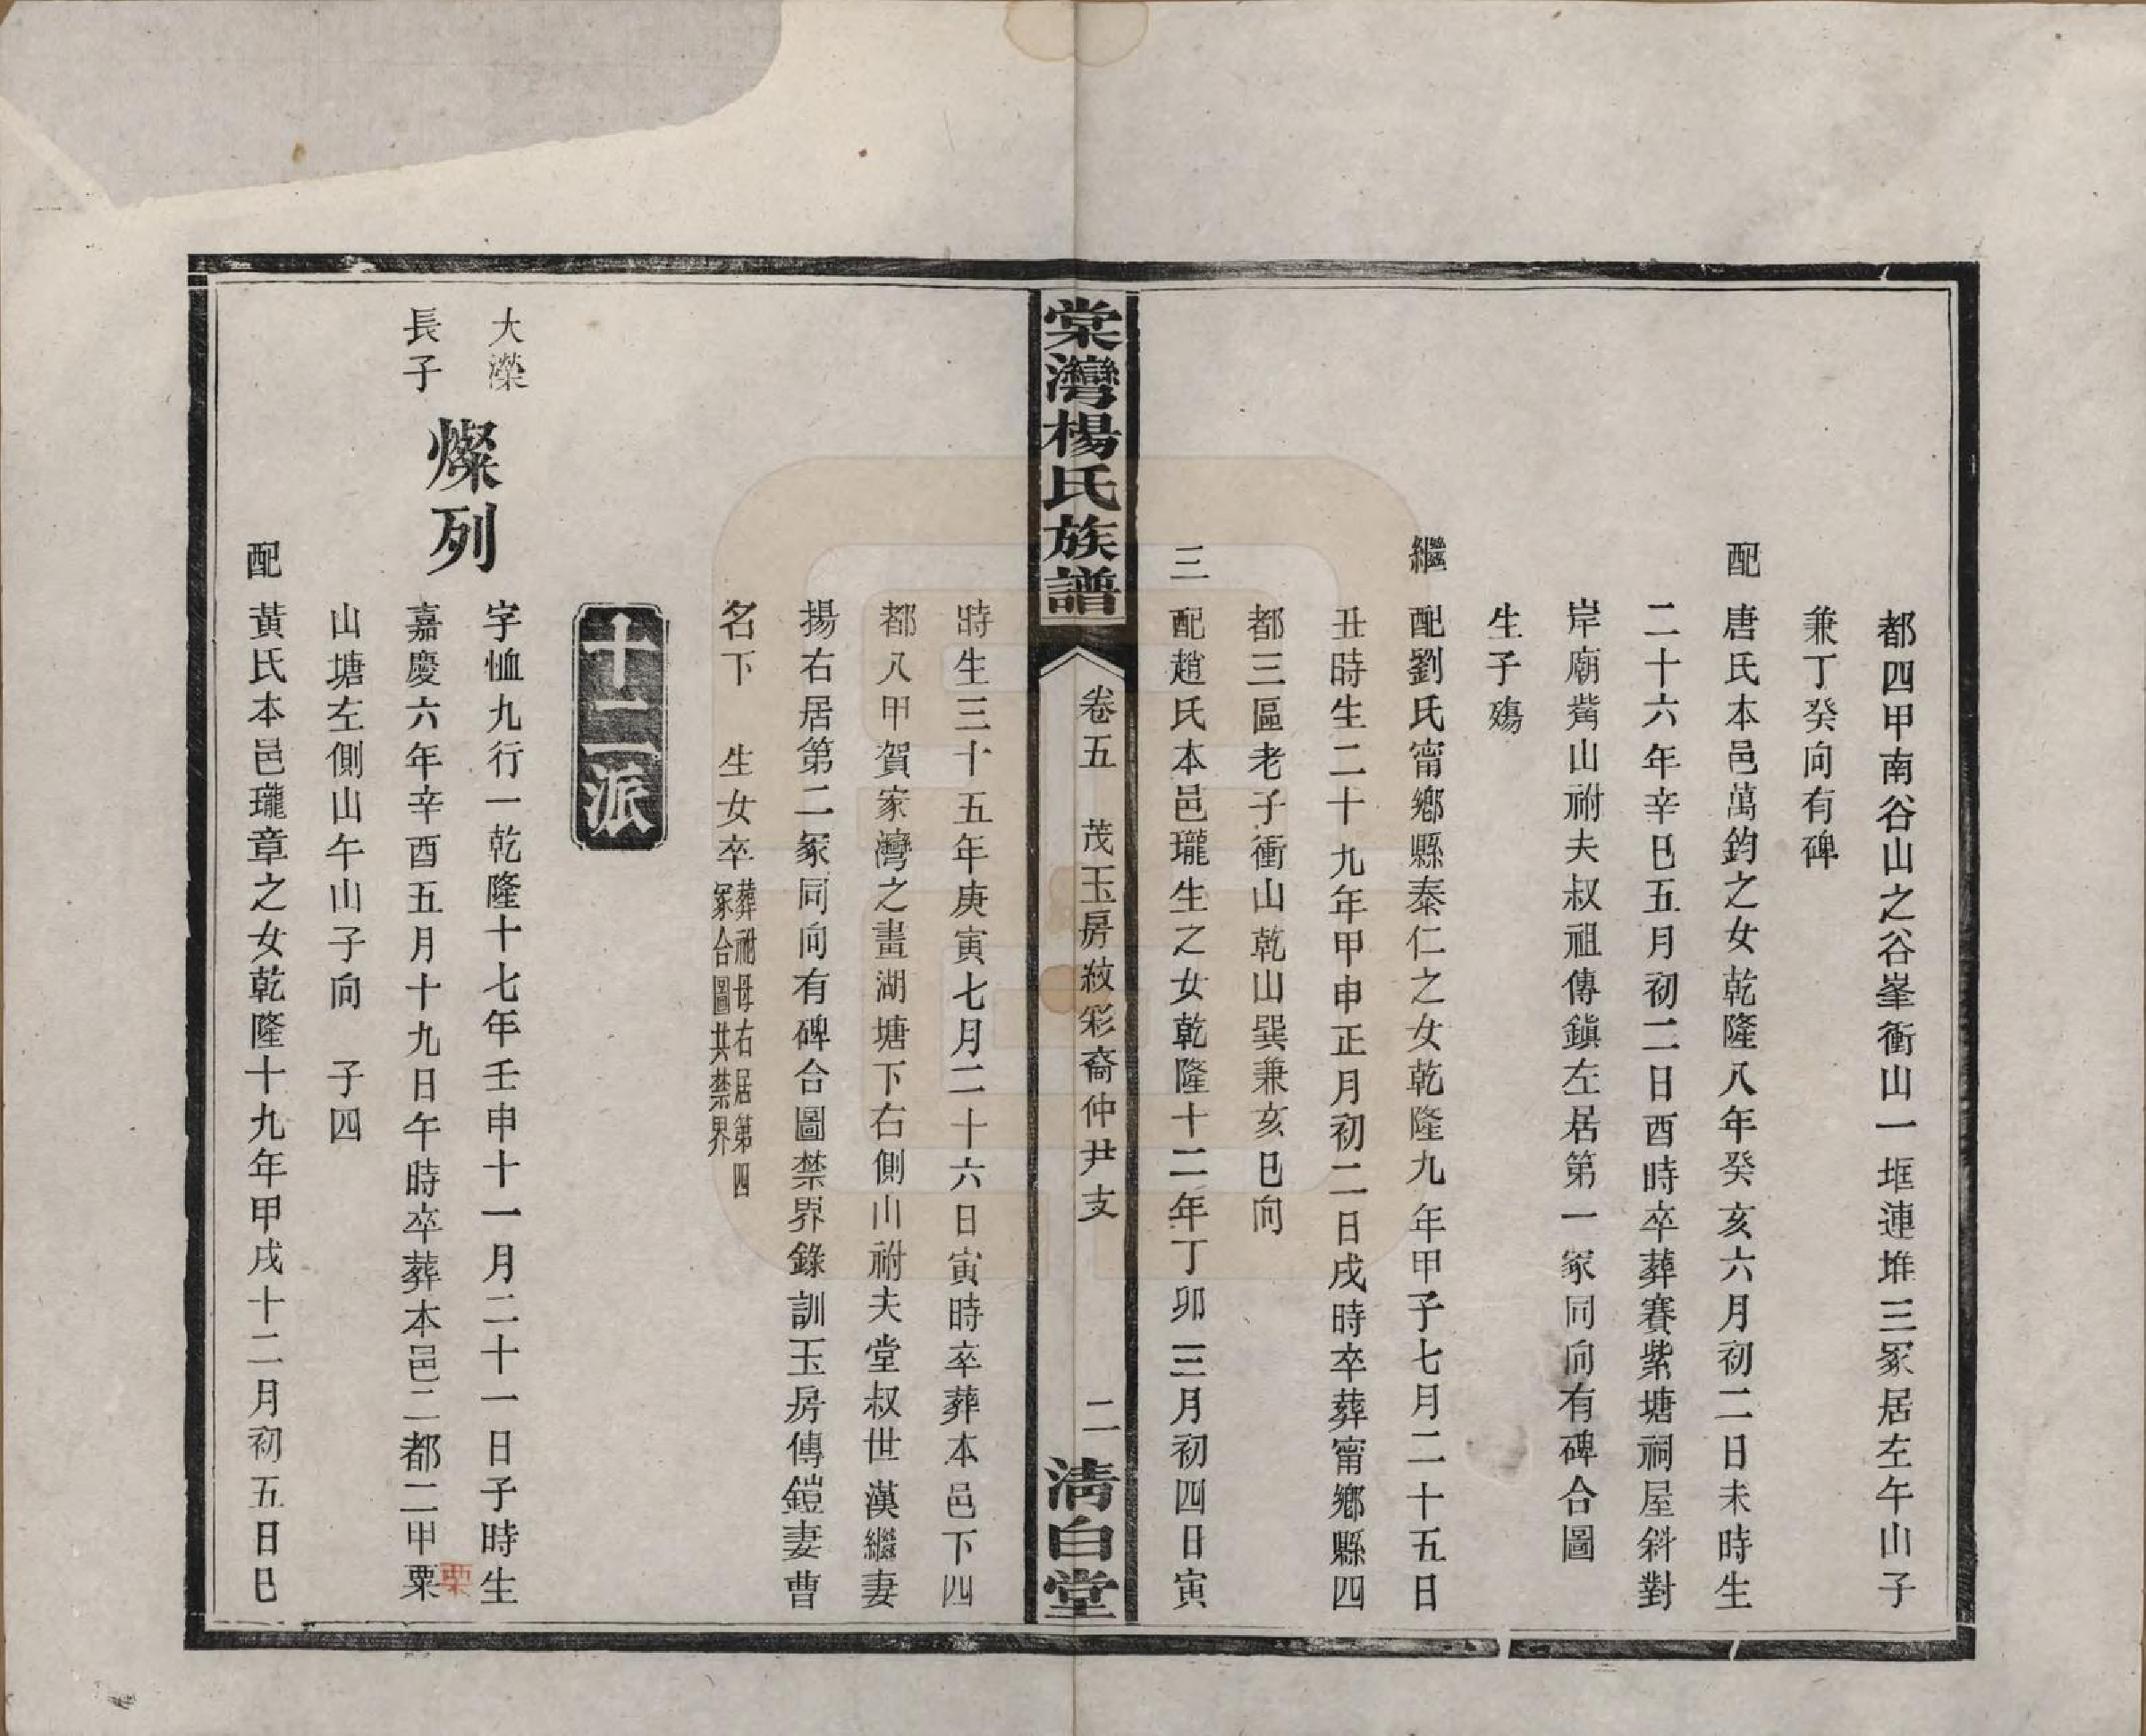 都四甲南谷山之谷峯衝山一堆連堆三冢居左午山子
兼丁癸向有碑
配唐氏本邑萬鈞之女乾隆八年癸亥六月初二日未時生
二十六年辛巳五月初二日酉時卒葬賽紫塘祠屋斜對
岸廟觜山祔夫叔祖傳鎮左居第一冢同向有碑合圖
生子殤
繼配劉氏甯鄉縣泰仁之女乾隆九年甲子七月二十五日
丑時生二十九年甲申正月初二日戌時卒葬甯鄉縣四
都三區老子衝山乾山巽兼亥巳向
三配趙氏本邑瓏生之女乾隆十二年丁卯三月初四日寅
棠灣楊氏族譜
卷五 茂玉房紋彩裔仲尹支
二
清白堂
時生三十五年庚寅七月二十六日寅時卒葬本邑下四
都八甲賀家灣之畫湖塘下右側山祔夫堂叔世漢繼妻
揚右居第二冢同向有碑合圖禁界錄訓玉房傳鎧妻曹
名下 生女卒葬祔母右居第四
冢合圖共禁界
十二派
大濼
長子
燦列
字恤九行一乾隆十七年壬申十一月二十一日子時生
嘉慶六年辛酉五月十九日午時卒葬本邑二都二甲粟
栗
山塘左側山午山子向 子四
配黃氏本邑瓏章之女乾隆十九年甲戌十二月初五日巳